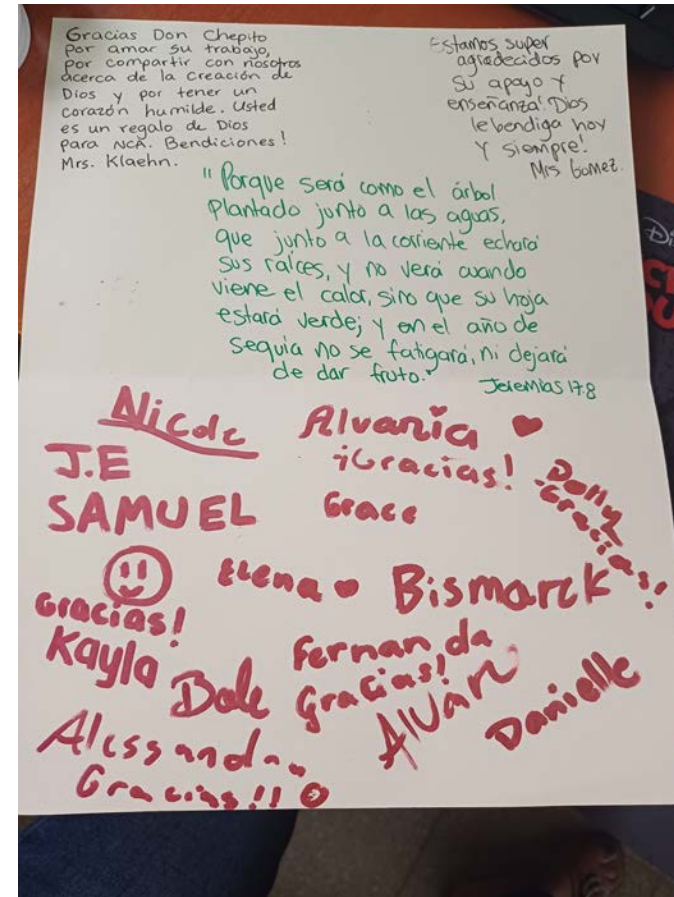 Gracias Don Chepito
por amar su trabajo,
por compartir con nosotros
acerca de la creación de
Dios y por tener un
corazón humilde. Usted
es un regalo de Dios
para NCA. Bendiciones!
Mrs. Klaehn.
Estamos super
agradecidos por
su apoyo y
enseñanza! Dios
le bendiga hoy
y siempre!
Mrs Gomez.
"Porque será como el árbol
Plantado junto a las aguas,
que junto a la corriente echará
sus raíces, y no verá cuando
viene el calor, sino que su hoja
estará verde; y en el año de
sequia no se fatigará, ni dejará
de dar fruto."
Jeremias 17:8
Nicole
Alvania
¡Gracias!
J.E
SAMUEL
Grace
Gracias!
Elena
Bismarck
Gracias!
Kayla
Fernanda
Gracias!
Alvaro
Danielle
Gracias!!